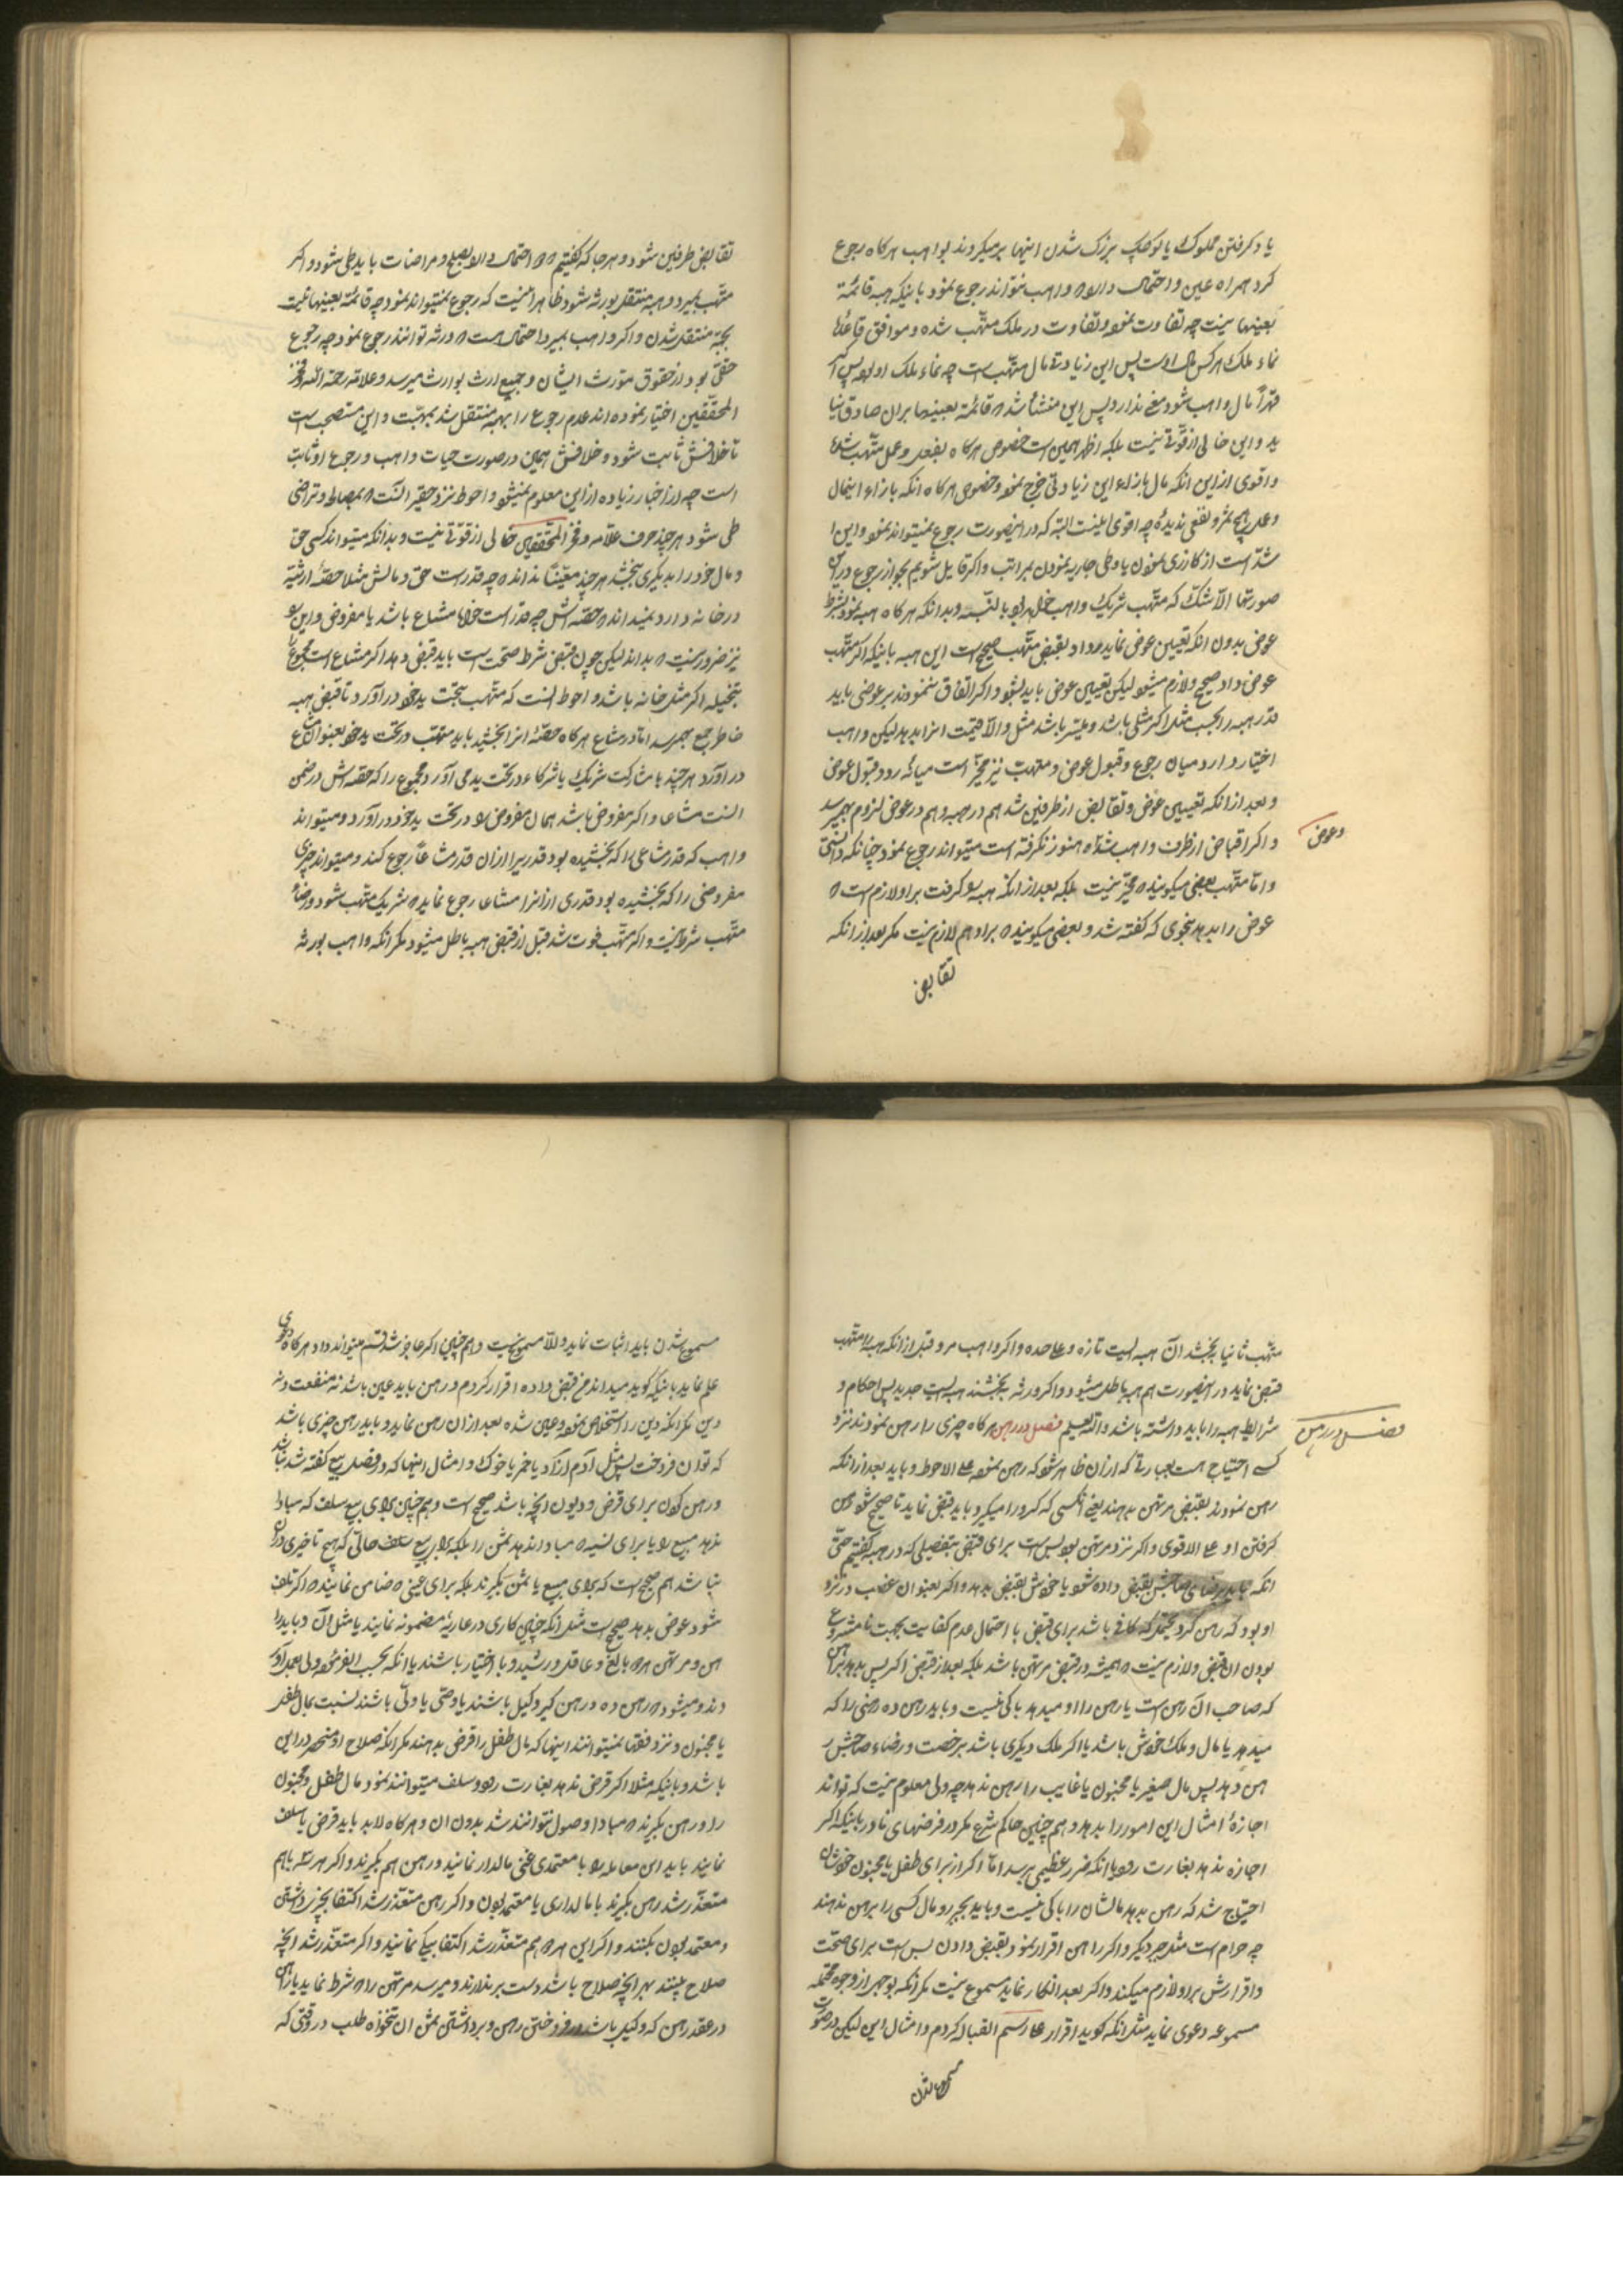 یا دکرفتن مملوک یا کوچک بزرک شدن اینها برمیکردند بواهب هرکاه رجوع
کرد همراه عین و احتمال دارد که واهب نتواند رجوع نمود باینکه هبه قائمة
بعینها نیست چه تفاوت نموده و تفاوت در ملک متهب شده و موافق قاعدهٔ
نماء ملک هرکس مال اوست پس این زیادتی مال متهب است چه نماء ملک او بوده پس
قهراً مال واهب شود معنی ندارد پس این منشأ شد که قائمة بعینها بران صادق نیا
ید و این خالی از قوّتی نیست بلکه اظهر همین است خصوص هرکاه بفعل و عمل متهب شده
و اقوی از این انکه مال بازاء این زیادتی خرج نموده و خصوص هرکاه انکه بازاء اینمال
و عمل هیچ ثمر و نفعی ندیده چه اقوی اینست البته که در اینصورت رجوع نمیتواند نمود و این
شدّ است از کازری نمودن یا وطی جاریه نمودن بمراتب و اکر قایل شویم بجواز رجوع در
صورتها الا شک که متهب شریک واهب خواهد بود بالنسبه و بدانکه هرکاه هبه نمود بشرط
عوض بدون انکه تعیین عوض نماید و داد بقبض متهب صحیح است این هبه باینکه اکر متهب
عوض داد صحیح و لازم میشود لیکن تعیین عوض باید بشود و اکر اتفاق ننمودند بر عوضی باید
قدر هبه را بحسب مثل اکر مثلی باشد و میسّر باشد مثل و الّا قیمت انرا بدهد لیکن واهب
اختیار دارد میان رجوع و قبول عوض و متهب نیز مخیّر است میانه رد و قبول عوض
و بعد از انکه تعیین عوض و تقابض از طرفین شد هم در هبه و هم در عوض لزوم بهم میرسد
و عوض
و اکر اقباض از طرف واهب شده هنوز نکرفته است میتواند رجوع نمود چنانکه دانستی
و امّا متهب بعضی میکویند که مخیّر نیست بلکه بعد از انکه هبه را کرفت بر او لازم است که
عوض را بدهد بنحوی که کفته شد و بعضی میکویند که بر او هم لازم نیست مکر بعد از انکه
تقابض
تقابض طرفین شود و هرجا که کفتیم که احتمال دارد بصلح و مراضات باید طی شود و اکر
متهب بمیرد و هبه منتقل بورثه شود ظاهر انست که رجوع نمیتواند نمود چه قائمة بعینها نیست
بجهة منتقل شدن و اکر واهب بمیرد احتمال هست که ورثه توانند رجوع نمود چه رجوع
حقی بود از حقوق مورّث ایشان و جمیع ارث بوارث میرسد و علامه رحمة الله و فخر
المحققین اختیار نموده اند عدم رجوع را بهبه منتقل شد بمتهب و این مستصحب است
تا خلافش ثابت شود و خلافش همین در صورت حیات واهب و رجوع او ثابت
است چه از اخبار زیاده از این معلوم نمیشود و احوط نزد حقیر انست که بمصالحه و تراضی
طی شود هرچند حرف علامه و فخر المحققین خالی از قوّتی نیست و بدانکه میتواند کسی حق
و مال خود را بدیکری بخشد هرچند معیّناً نداند که چه قدر است حق و مالش مثلا حصّهٔ ارثیه
در خانه دارد نمیداند که حصّه اش چه قدر است خواه مشاع باشد یا مفروض و این را
نیز ضرور نیست که بداند لیکن چون قبض شرط صحّت است باید قبض دهد اکر مشاع است مجموع
بتخلیه اکر مثل خانه باشد و احوط انست که متهب بتحت ید خود در آورد تا قبض هبه
خاطر جمع بهم رسد امّا در مشاع هرکاه حصّهٔ انرا بخشید باید متهب در تحت ید خود بعنوان مشاع
در آورد هرچند بمشارکت شریک یا شرکاء در تحت ید می آورد مجموع را که حصّه اش در ضمن
انست مشاعا و اکر مفروض باشد همان مفروض را در تحت ید خود در آورد و میتواند
واهب که قدر مشاعی را که بخشیده بود قدری را از ان قدر مشاعاً رجوع کند و میتواند چیزی
مفروضی را که بخشیده بود قدری از انرا مشاعا رجوع نماید که شریک متهب شود و رضاء
متهب شرط نیست و اکر متهب فوت شد قبل از قبض هبه باطل میشود مکر انکه واهب بورثه
متهب ثانیا بخشد آن هبه ایست تازه و علاحده و اکر واهب مرد قبل از انکه هبه را متهب
قبض نماید در اینصورت هم هبه باطل میشود و اکر ورثه بخشند هبه ایست جدید پس احکام و
شرایط هبه را باید داشته باشد والله یعلم فصل در رهن هرکاه چیزی را رهن نمودند نزد
فصل در رهن
کسی احتیاج هست بعبارتی که از ان ظاهر شود که رهن نموده علی الاحوط و باید بعد از انکه
رهن نمودند بقبض مرتهن بدهند یعنی انکسی که کرو را میکیرد باید قبض نماید تا صحیح شود رهن
کرفتن او علی الاقوی و اکر نزد مرتهن بود بس است برای قبض بتفصیلی که در هبه کفتیم حتّی
انکه باید برضای صاحبش بقبض داده شود یا خودش بقبض بدهد و اکر بعنوان غصب در نزد
او بود که رهن کرد محتمل که کافی باشد برای قبض با احتمال عدم کفایت بجهت نامشروع
بودن ان قبض و لازم نیست که همیشه در قبض مرتهن باشد بلکه بعد از قبض اکر پس بدهد براهن
که صاحب ان رهن است یا رهن را او میدهد باکی نیست و باید رهن ده رهنی را که
میدهد یا مال و ملک خودش باشد یا اکر ملک دیکری باشد برخصت و رضاء صاحبش ر
هن دهد پس مال صغیر یا مجنون یا غایب را رهن ندهد چه ولی معلوم نیست که تواند
اجازهٔ امثال این امور را بدهد و هم چنین حاکم شرع مکر در فرضهای نادر باینکه اکر
اجازه ندهد بغارت رود یا انکه ضرر عظیمی برسد امّا اکر از برای طفل یا مجنون خودشان
احتیاج شد که رهن بدهد مالشان را باکی نیست و باید بجبر و مال کسی را برهن ندهند
چه حرام است مثل جبر دیکر و اکر راهن اقرار نمود بقبض دادن بس است برای صحّت
و اقرارش بر او لازم میکند و اکر بعد انکار نماید مسموع نیست مکر انکه بوجهی از وجوه محتمله
مسموعه دعوی نماید مثل انکه کوید اقرار علی رسم القباله کردم و امثال این لیکن در صورت
مسموع شدن
مسموع شدن باید اثبات نماید و الّا مسموع نیست و هم چنین اکر عاجز شد قسم میتواند داد هرکاه دعوی
علم نماید باینکه کوید میداند من قبض نداده اقرار کردم و رهن باید عین باشد نه منفعت و نه
دین مکر انکه دین را استخلاص نموده و عین شده بعد از ان رهن نماید و باید رهن چیزی باشد
که توان فروخت پس مثل آدم ازاد یا خمر یا خوک و امثال اینها که در فصل بیع کفته شد نباشد
و رهن کردن برای قرض و دیون انچه باشد صحیح است و هم چنین برای بیع سلف که مبادا
ندهد مبیع را یا برای نسیه که مبادا ندهد ثمن را بلکه برای بیع حالی که هیچ تاخیری در ان
نباشد هم صحیح است که برای مبیع یا ثمن بکیرند بلکه برای عینی که ضامن نمایند که اکر تلف
شود عوض بدهد صحیح است مثل انکه چنین کاری در عاریهٔ مضمونه نمایند یا مثل ان و باید را
هن و مرتهن هر دو بالغ و عاقل و رشید و با اختیار باشند یا انکه بحسب الفرموده ولی بعمل آور
دند و میشود که رهن ده و رهن کیر وکیل باشند یا وصّی یا ولّی باشند نسبت بمال طفل
یا مجنون و نزد فقها نمیتوانند اینها که مال طفل را قرض بدهند مکر انکه صلاح او منحصر در این
باشد و باینکه مثلا اکر قرض ندهد بغارت رود و سلف میتوانند نمود مال طفل و مجنون
را و رهن بکیرند که مبادا وصول نتوانند شد بدون ان و هرکاه لابد باید قرض یا سلف
نمایند باید این معامله را با معتمدی غنی مالدار نمایند و رهن هم بکیرند و اکر هر سه با هم
متعذّر شد رهن بکیرند با مالداری یا معتمد بودن و اکر رهن متعذّر شد اکتفا بچیز داشتن
و معتمد بودن بکنند و اکر این هر دو هم متعذّر شد اکتفا بیکی نمایند و اکر متعذّر شد انچه
صلاح بینند بهر انچه صلاح باشد دست برندارند و میرسد مرتهن را که شرط نماید با راهن
در عقد رهن که وکیل باشد در فروختن رهن و برداشتن ثمن ان بتنخواه طلب در وقتی که